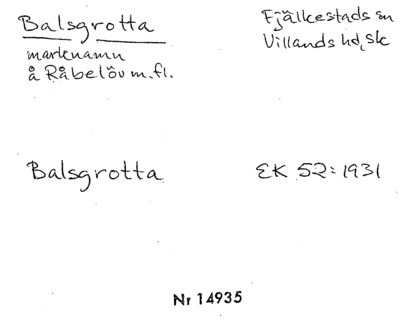 Balsgrotta
marknamn
å Råbelöv m.fl.
Fjälkestads sn
Villands hd, Sk
Balsgrotta
EK 52:1931
Nr 14935